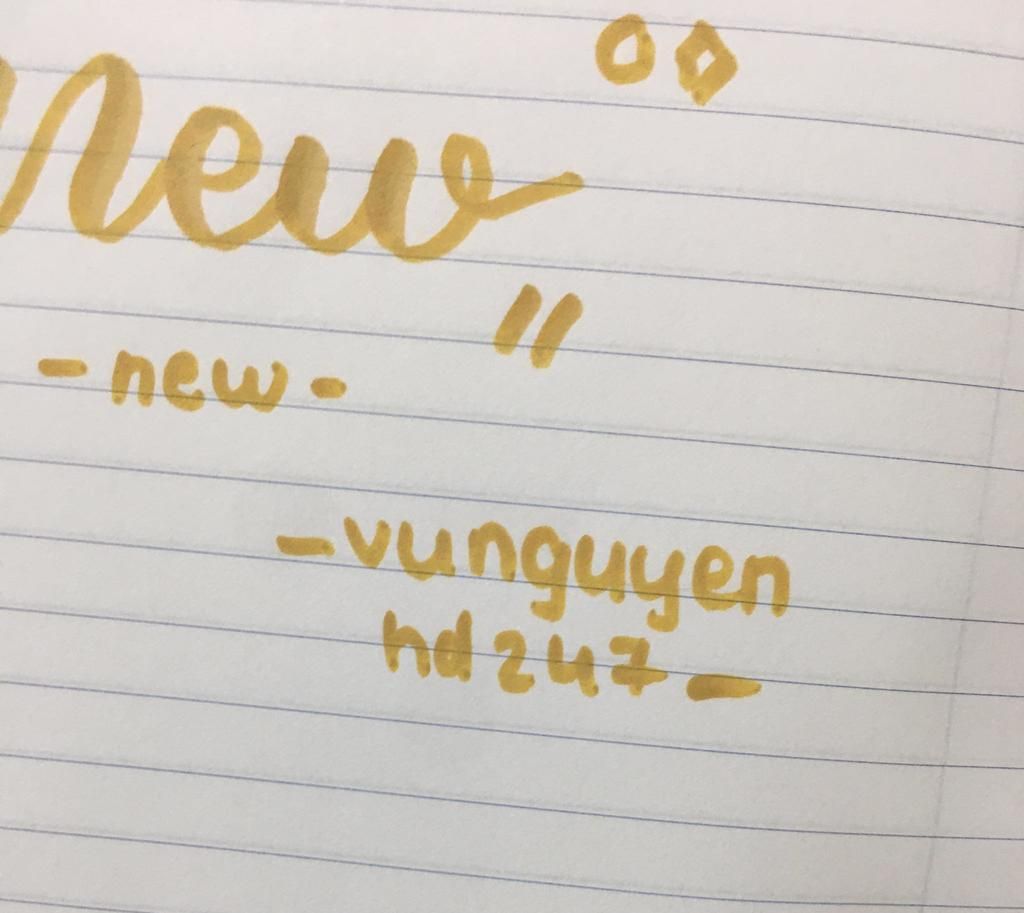 new
"
- new -
- vunguyen
hd247 -